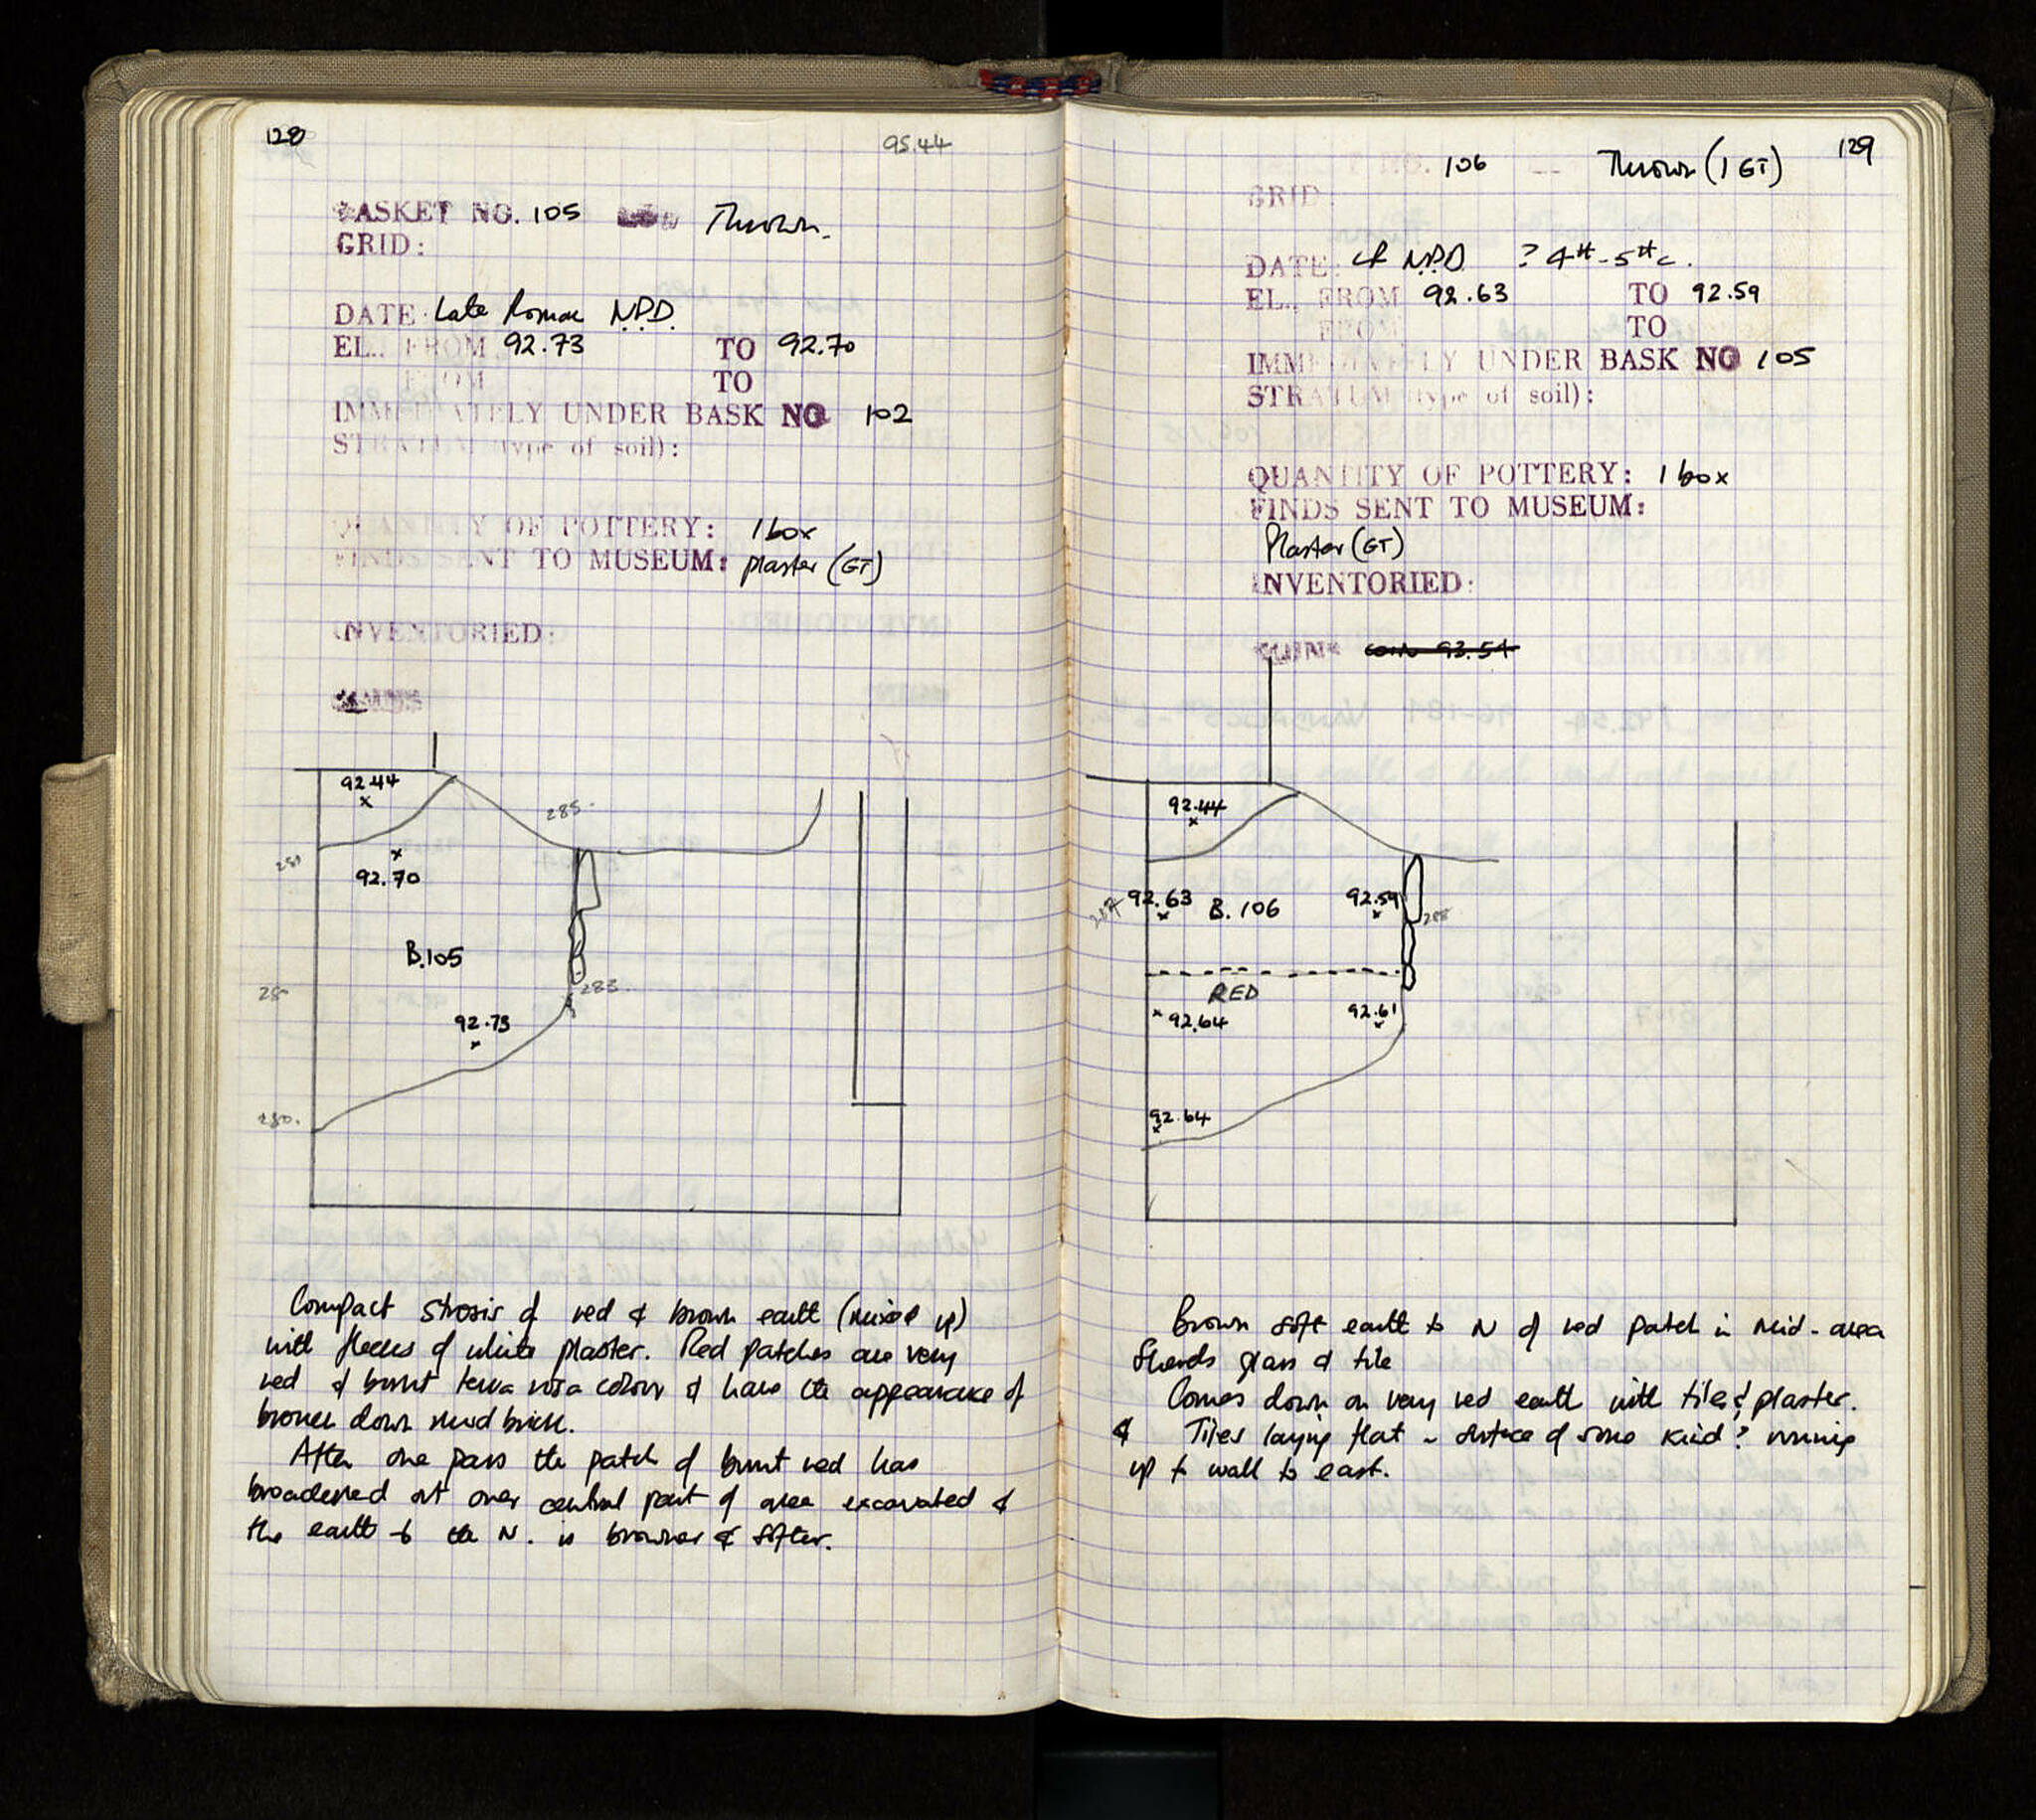 128
95.44
BASKET NO. 105 Thrown.
GRID:
DATE: Late Roman N.P.D.
EL., FROM 92.73 TO 92.70
FROM TO
IMMEDIATELY UNDER BASK NO 102
STRATUM (type of soil):
QUANTITY OF POTTERY: 1 box
FINDS SENT TO MUSEUM: plaster (GT)
INVENTORIED:
92.44
285.
92.70
B.105
283.
92.73
280.
Compact strosis of red & brown earth (mixed up)
with flecks of white plaster. Red patches are very
red & burnt terra rosa colour & have the appearance of
broken down mud brick.
After one pass the patch of burnt red has
broadened out over central part of area excavated &
the earth to the N. is browner & softer.
129
NO. 106 Thrown (1 GT)
GRID:
DATE: LR N.P.D. ? 4th-5th c.
EL., FROM 92.63 TO 92.59
FROM TO
IMMEDIATELY UNDER BASK NO 105
STRATUM (type of soil):
QUANTITY OF POTTERY: 1 box
FINDS SENT TO MUSEUM:
Plaster (GT)
INVENTORIED:
COINS coin 93.54
92.44
92.63 B. 106 92.59
288
RED
92.64 92.61
92.64
Brown soft earth to N of red patch in mid-area
Sherds glass & tile
Comes down on very red earth with tiles & plaster.
& Tiles laying flat ~ surface of some kind? running
up to wall to east.